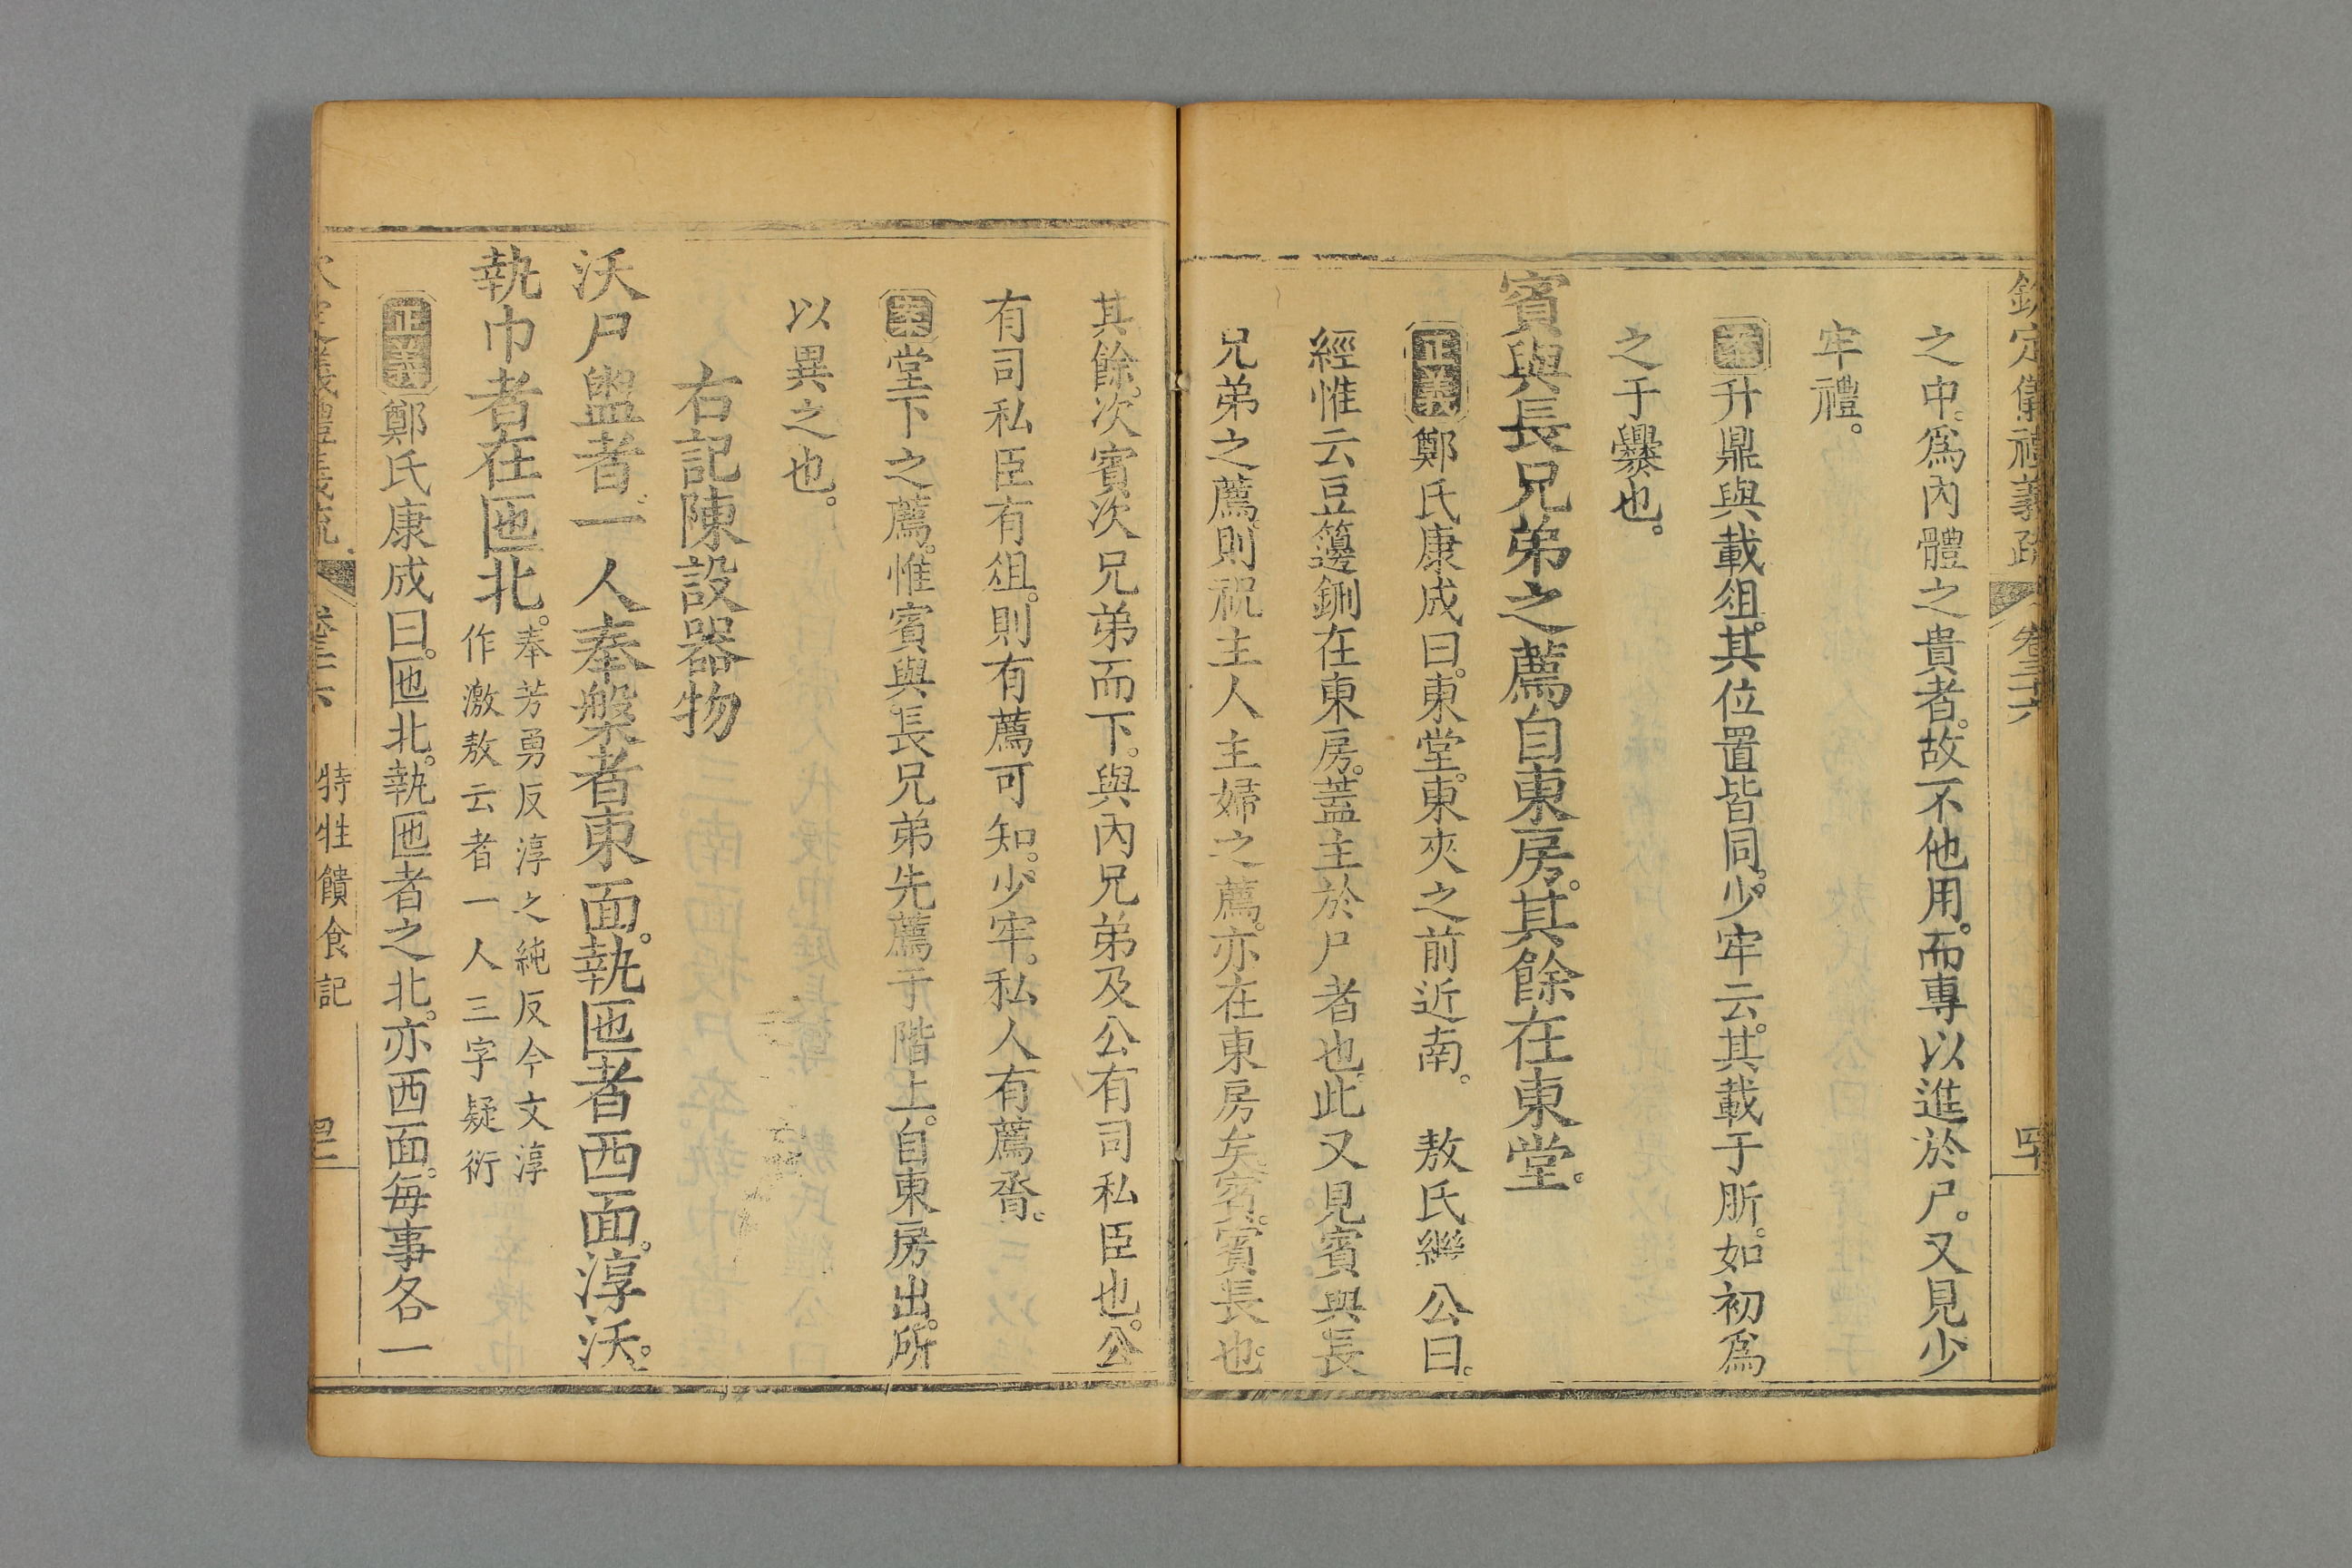 欽定儀禮義疏 卷三十六 四十
之中。爲內體之貴者。故不他用。而專以進於尸。又見少
牢禮。
案升鼎與載俎。其位置皆同。少牢云。其載于肵。如初爲
之于爨也。
賓與長兄弟之薦自東房。其餘在東堂。
正義鄭氏康成曰。東堂。東夾之前近南。 敖氏繼公曰。
經惟云豆籩鉶在東房。蓋主於尸者也。此又見賓與長
兄弟之薦。則祝主人主婦之薦。亦在東房矣。賓。賓長也。
其餘。次賓次兄弟而下。與內兄弟及公有司私臣也。公
有司私臣有俎。則有薦可知。少牢。私人有薦脀。
案堂下之薦。惟賓與長兄弟先薦于階上。自東房出。所
以異之也。
右記陳設器物
沃尸盥者一人奉槃者東面。執匜者西面。淳沃。
執巾者在匜北。奉芳勇反淳之純反今文淳
作激敖云者一人三字疑衍
正義鄭氏康成曰。匜北。執匜者之北。亦西面。每事各一
儀禮義疏 卷三十六 特牲饋食記